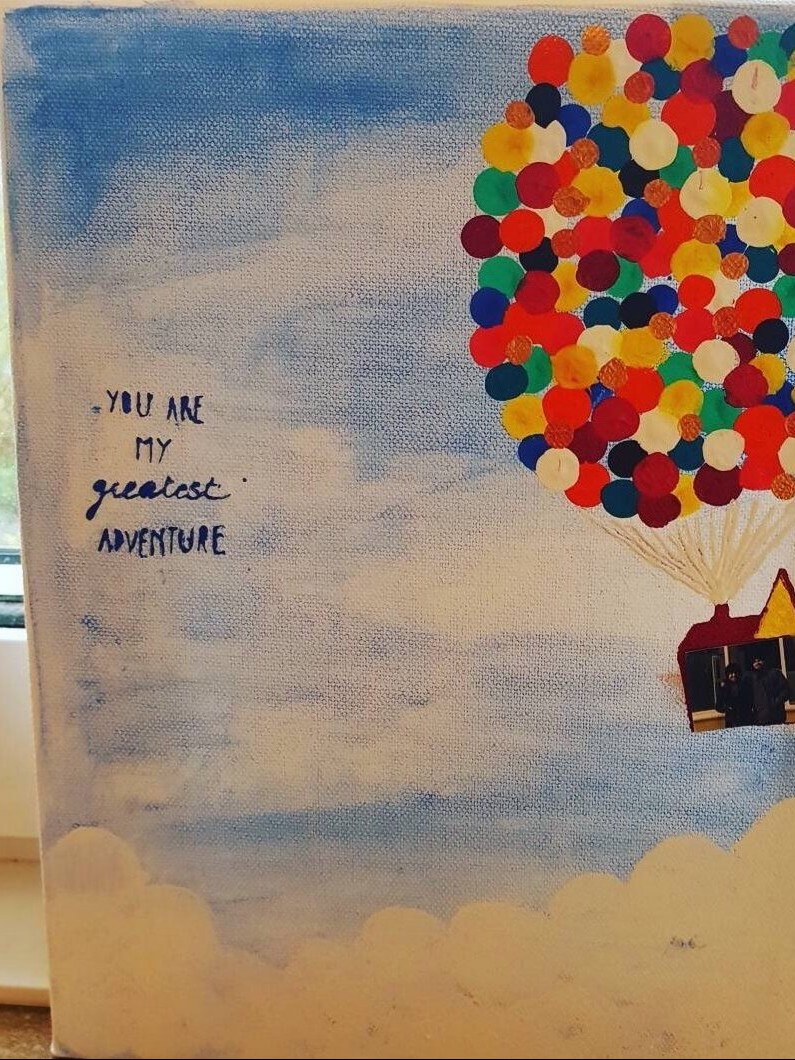 YOU ARE
MY
greatest
ADVENTURE